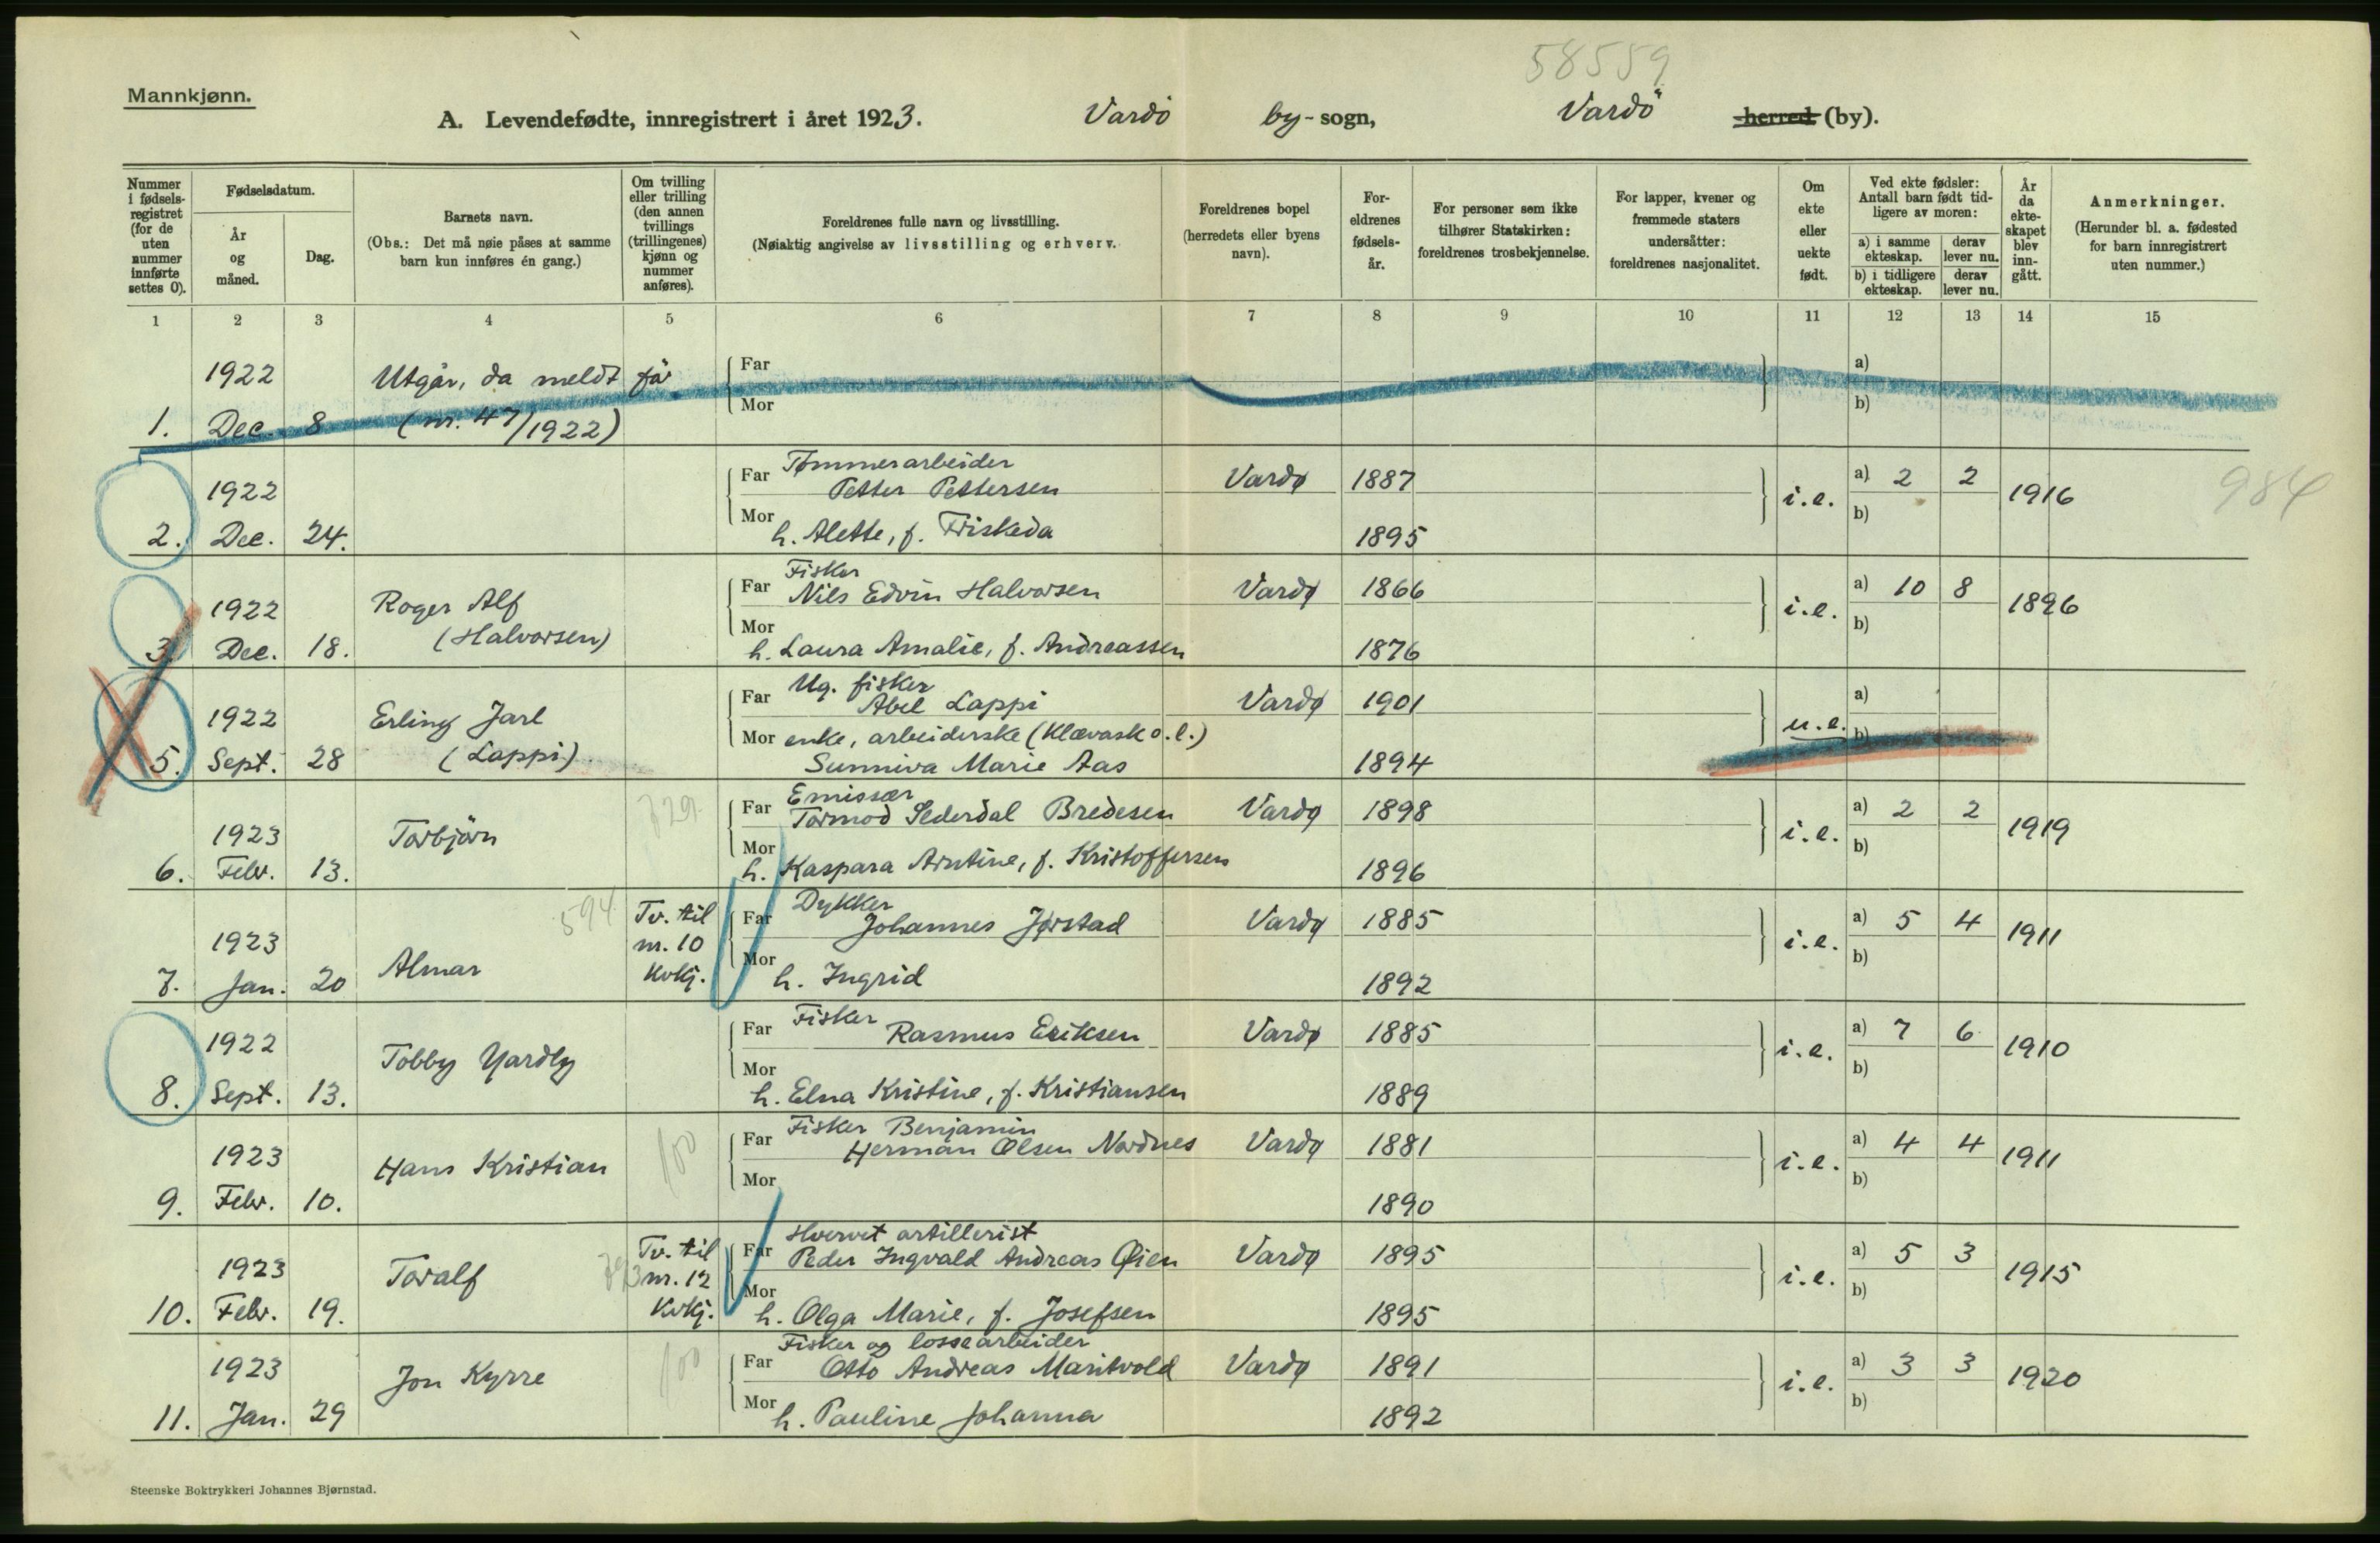 58559
Mannkjønn.
A. Levendefødte, innregistrert i året 1923. Vardö by-sogn, Vardö herred (by).
Nummer i fødselsregistret (for de uten nummer innførte settes 0).
Fødselsdatum.
År og måned.
Dag.
Barnets navn.
(Obs.: Det må nøie påses at samme barn kun innføres én gang.)
Om tvilling eller trilling (den annen tvillings (trillingenes) kjønn og nummer anføres).
Foreldrenes fulle navn og livsstilling.
(Nøiaktig angivelse av livsstilling og erhverv.
Foreldrenes bopel (herredets eller byens navn).
Foreldrenes fødselsår.
For personer som ikke tilhører Statskirken: foreldrenes trosbekjennelse.
For lapper, kvener og fremmede staters undersåtter: foreldrenes nasjonalitet.
Om ekte eller uekte født.
Ved ekte fødsler: Antall barn født tidligere av moren:
a) i samme ekteskap. derav lever nu.
b) i tidligere ekteskap. derav lever nu.
År da ekteskapet blev inngått.
Anmerkninger.
(Herunder bl. a. fødested for barn innregistrert uten nummer.)
1 2 3 4 5 6 7 8 9 10 11 12 13 14 15
1922 Utgår, da meldt før Far a)
1. Dec. 8 (nr. 47/1922) Mor b)
Tømmerarbeider
1922 Far Petter Pettersen Vardø 1887 i.e. a) 2 2 1916 984
2. Dec. 24. Mor h. Alette, f. Friskeda 1895 b)
Fisker
1922 Roger Alf Far Nils Edvin Halvorsen Vardø 1866 i.e. a) 10 8 1896
3. Dec. 18. (Halvorsen) Mor h. Laura Amalie, f. Andreassen 1876 b)
Ug. fisker
1922 Erling Jarl Far Abel Lappi Vardø 1901 u.e. a)
Mor enke, arbeiderske (Klævask o.l.) b)
5. Sept. 28 (Lappi) Sunniva Marie Aas 1894
Emissær
1923 Torbjörn Far Tormod Sederdal Bredesen Vardø 1898 i.e. a) 2 2 1919
6. Febr. 13. Mor h. Kaspara Arntine, f. Kristoffersen 1896 b)
594 Tv. til Dykker
1923 nr. 10 Far Johannes Jørstad Vardø 1885 i.e. a) 5 4 1911
7. Jan. 20 Almar Kvkj. Mor h. Ingrid 1892 b)
Fisker
1922 Tobby Yardly Far Rasmus Eriksen Vardø 1885 i.e. a) 7 6 1910
8. Sept. 13. Mor h. Elna Kristine, f. Kristiansen 1889 b)
Fisker Benjamin
1923 Hans Kristian 100 Far Herman Olsen Nordnes Vardø 1881 i.e. a) 4 4 1911
9. Febr. 10. Mor 1890 b)
Tv. til Hvervet artillerist
1923 Toralf nr. 12 Far Peder Ingvald Andreas Øien Vardø 1895 i.e. a) 5 3 1915
10. Febr. 19. Kvkj. Mor h. Olga Marie, f. Josefsen 1895 b)
Fisker og lossearbeider
1923 Jon Kyrre 100 Far Otto Andreas Maritvold Vardø 1891 i.e. a) 3 3 1920
11. Jan. 29 Mor h. Pauline Johanna 1892 b)
Steenske Boktrykkeri Johannes Bjørnstad.